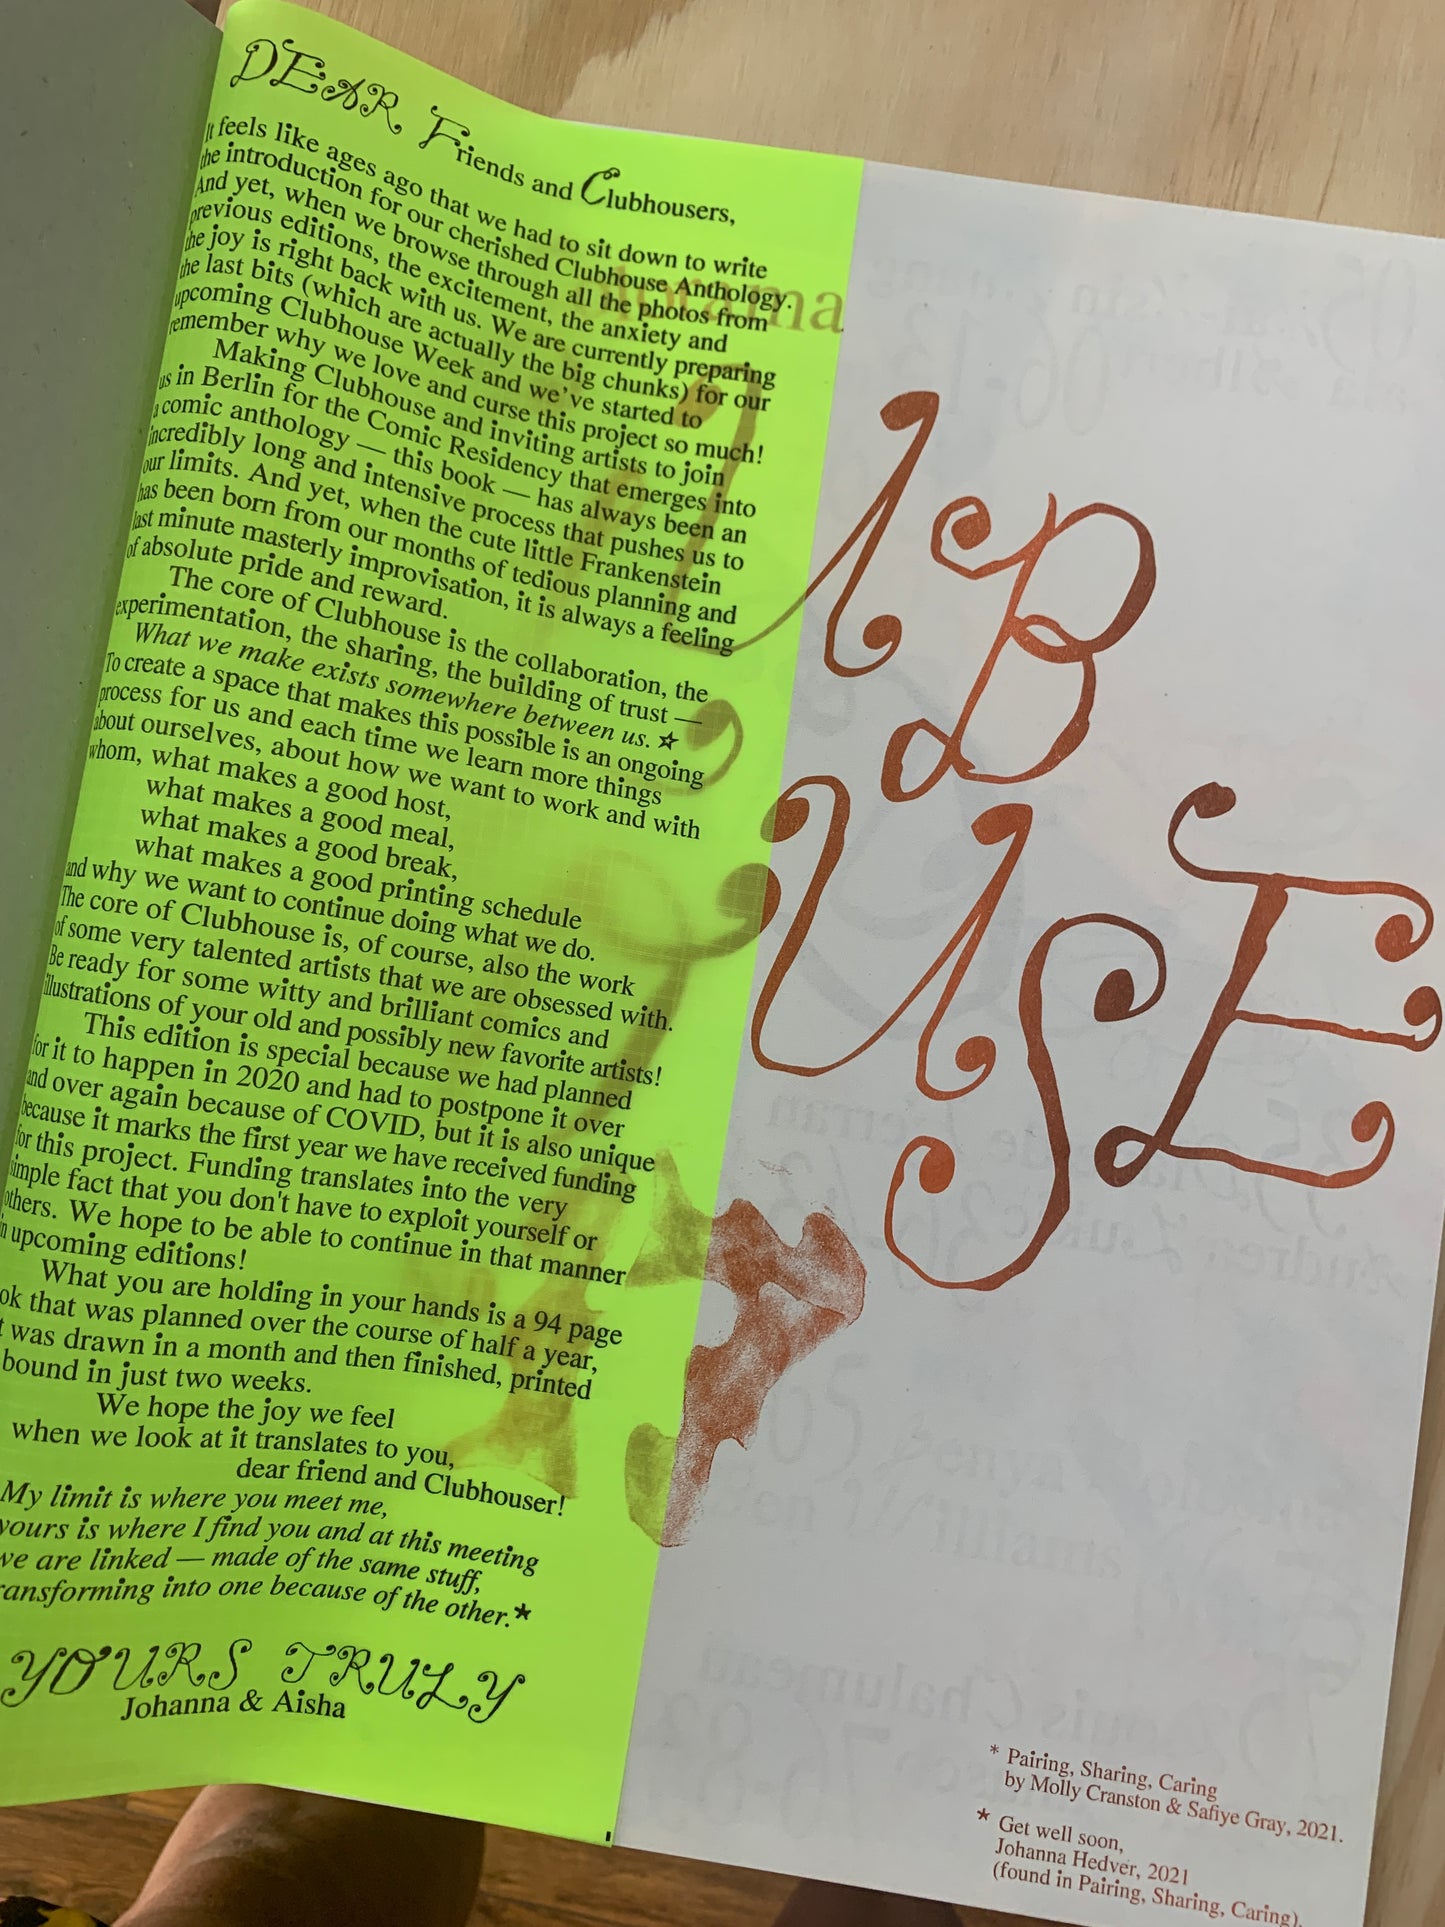 DEAR Friends and Clubhousers,
It feels like ages ago that we had to sit down to write
the introduction for our cherished Clubhouse Anthology.
And yet, when we browse through all the photos from
previous editions, the excitement, the anxiety and
the joy is right back with us. We are currently preparing
the last bits (which are actually the big chunks) for our
upcoming Clubhouse Week and we've started to
remember why we love and curse this project so much!
Making Clubhouse and inviting artists to join
us in Berlin for the Comic Residency that emerges into
a comic anthology — this book — has always been an
incredibly long and intensive process that pushes us to
our limits. And yet, when the cute little Frankenstein
has been born from our months of tedious planning and
last minute masterly improvisation, it is always a feeling
of absolute pride and reward.
The core of Clubhouse is the collaboration, the
experimentation, the sharing, the building of trust —
What we make exists somewhere between us. ☆
To create a space that makes this possible is an ongoing
process for us and each time we learn more things
about ourselves, about how we want to work and with
whom, what makes a good host,
what makes a good meal,
what makes a good break,
what makes a good printing schedule
and why we want to continue doing what we do.
The core of Clubhouse is, of course, also the work
of some very talented artists that we are obsessed with.
Be ready for some witty and brilliant comics and
illustrations of your old and possibly new favorite artists!
This edition is special because we had planned
for it to happen in 2020 and had to postpone it over
and over again because of COVID, but it is also unique
because it marks the first year we have received funding
for this project. Funding translates into the very
simple fact that you don't have to exploit yourself or
others. We hope to be able to continue in that manner
in upcoming editions!
What you are holding in your hands is a 94 page
ok that was planned over the course of half a year,
t was drawn in a month and then finished, printed
bound in just two weeks.
We hope the joy we feel
when we look at it translates to you,
dear friend and Clubhouser!
My limit is where you meet me,
yours is where I find you and at this meeting
we are linked — made of the same stuff,
ransforming into one because of the other.★
YOURS TRULY
Johanna & Aisha
B
USE
* Pairing, Sharing, Caring
by Molly Cranston & Safiye Gray, 2021.
★ Get well soon,
Johanna Hedver, 2021
(found in Pairing, Sharing, Caring).